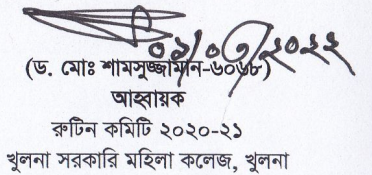 ০৯/০৩/২০২২
(ড. মোঃ শামসুজ্জামান-৬০৬৮)
আহ্বায়ক
রুটিন কমিটি ২০২০-২১
খুলনা সরকারি মহিলা কলেজ, খুলনা